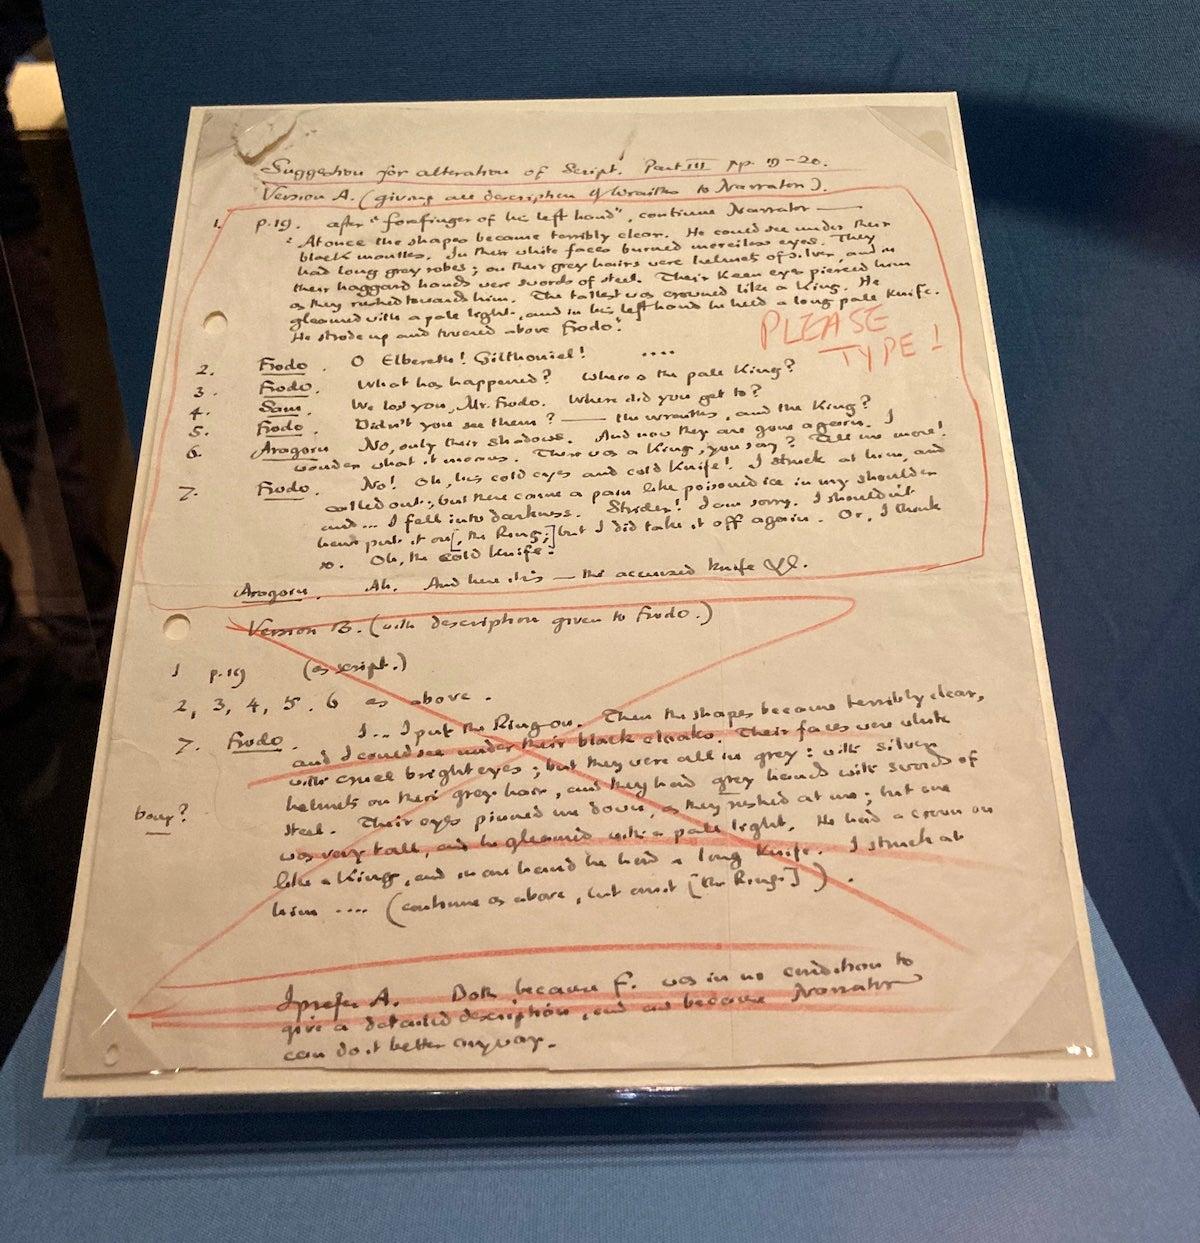 Suggestion for alteration of Script. Part III pp. 19-20.
Version A. (giving all description of Wraiths to Narrator).
1. p.19. after "forefinger of his left hand", continue Narrator ——
'At once the shapes became terribly clear. He could see under their
black mantles. In their white faces burned merciless eyes. They
had long grey robes; on their grey hairs were helmets of silver, and in
their haggard hands were swords of steel. Their keen eyes pierced him
as they rushed towards him. The tallest was crowned like a King. He
gleamed with a pale light, and in his left hand he held a long pale knife.
He strode up and towered above Frodo.'
PLEASE
TYPE!
2. Frodo. O Elbereth! Gilthoniel! ....
3. Frodo. What has happened? Where is the pale King?
4. Sam. We lost you, Mr. Frodo. Where did you get to?
5. Frodo. Didn't you see them? —— the wraiths, and the King?
6. Aragorn No, only their shadows. And now they are gone again. I
wonder what it means. There was a King, you say? Tell me more!
7. Frodo. No! Oh, his cold eyes and cold knife! I struck at him, and
called out; but there came a pain like poisoned ice in my shoulder
and... I fell into darkness. Strider! I am sorry. I shouldn't
have put it on[, the Ring;] but I did take it off again. Or, I think
so. Oh, the cold knife!
Aragorn. Ah. And here it is — the accursed knife
Version B. (with description given to Frodo.)
1 p.19 (as script.)
2, 3, 4, 5. 6 as above.
7. Frodo. I... I put the Ring on. Then the shapes became terribly clear,
and I could see under their black cloaks. Their faces were white
with cruel bright eyes; but they were all in grey: with silver
helmets on their grey hair, and they had grey hands with swords of
steel. Their eyes pinned me down, as they rushed at me; but one
was very tall, and he gleamed with a pale light. He had a crown on
like a King, and in one hand he had a long knife. I struck at
him .... (continue as above, but omit [the Ring;]).
I prefer A. Both because F. was in no condition to
give a detailed description, and because Narrator
can do it better anyway.